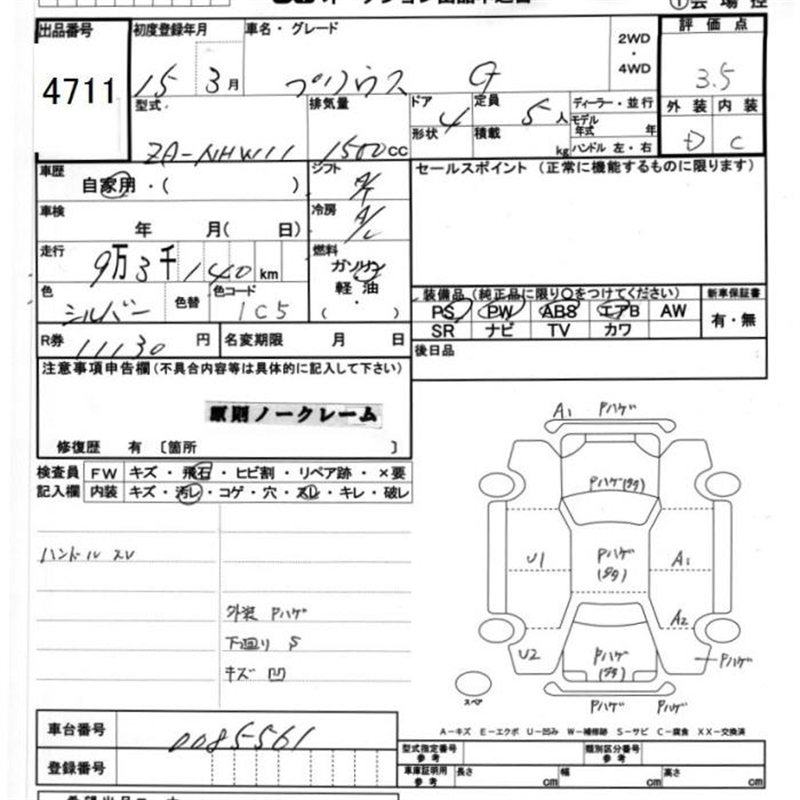 出品番号 初度登録年月 車名・グレード 2WD・4WD 評価点
4711 15 3月 プリウス G 3.5
型式 排気量 ドア形状 定員 ディーラー・並行 外装 内装
ZA-NHW11 1500cc 4 5人 モデル年式 年 D C
積載 kg ハンドル 左・右
車歴 自家用・( ) シフト A/T セールスポイント (正常に機能するものに限ります)
車検 年 月( 日) 冷房 A/C
走行 9万3千140km 燃料 ガソリン 軽油・( )
色 シルバー 色替 色コード 1C5
装備品(純正品に限り○をつけてください) 新車保証書
PS PW ABS エアB AW 有・無
SR ナビ TV カワ
R券 11130円 名変期限 月 日 後日品
注意事項申告欄(不具合内容等は具体的に記入して下さい)
原則ノークレーム
修復歴 有 〔箇所 〕
検査員 FW キズ・飛石・ヒビ割・リペア跡・×要
記入欄 内装 キズ・汚レ・コゲ・穴・スレ・キレ・破レ
ハンドルスレ
外装 Pハゲ
下廻り S
キズ 凹
A1 Pハゲ
Pハゲ(タタ)
U1 Pハゲ(タタ) A1
A2
U2 Pハゲ(タタ) Pハゲ
スペア Pハゲ Pハゲ
A-キズ E-エクボ U-凹み W-補修跡 S-サビ C-腐食 XX-交換済
車台番号 0085561
登録番号
型式指定番号 参考 類別区分番号 参考
車庫証明用 参考 長さ cm 幅 cm 高さ cm